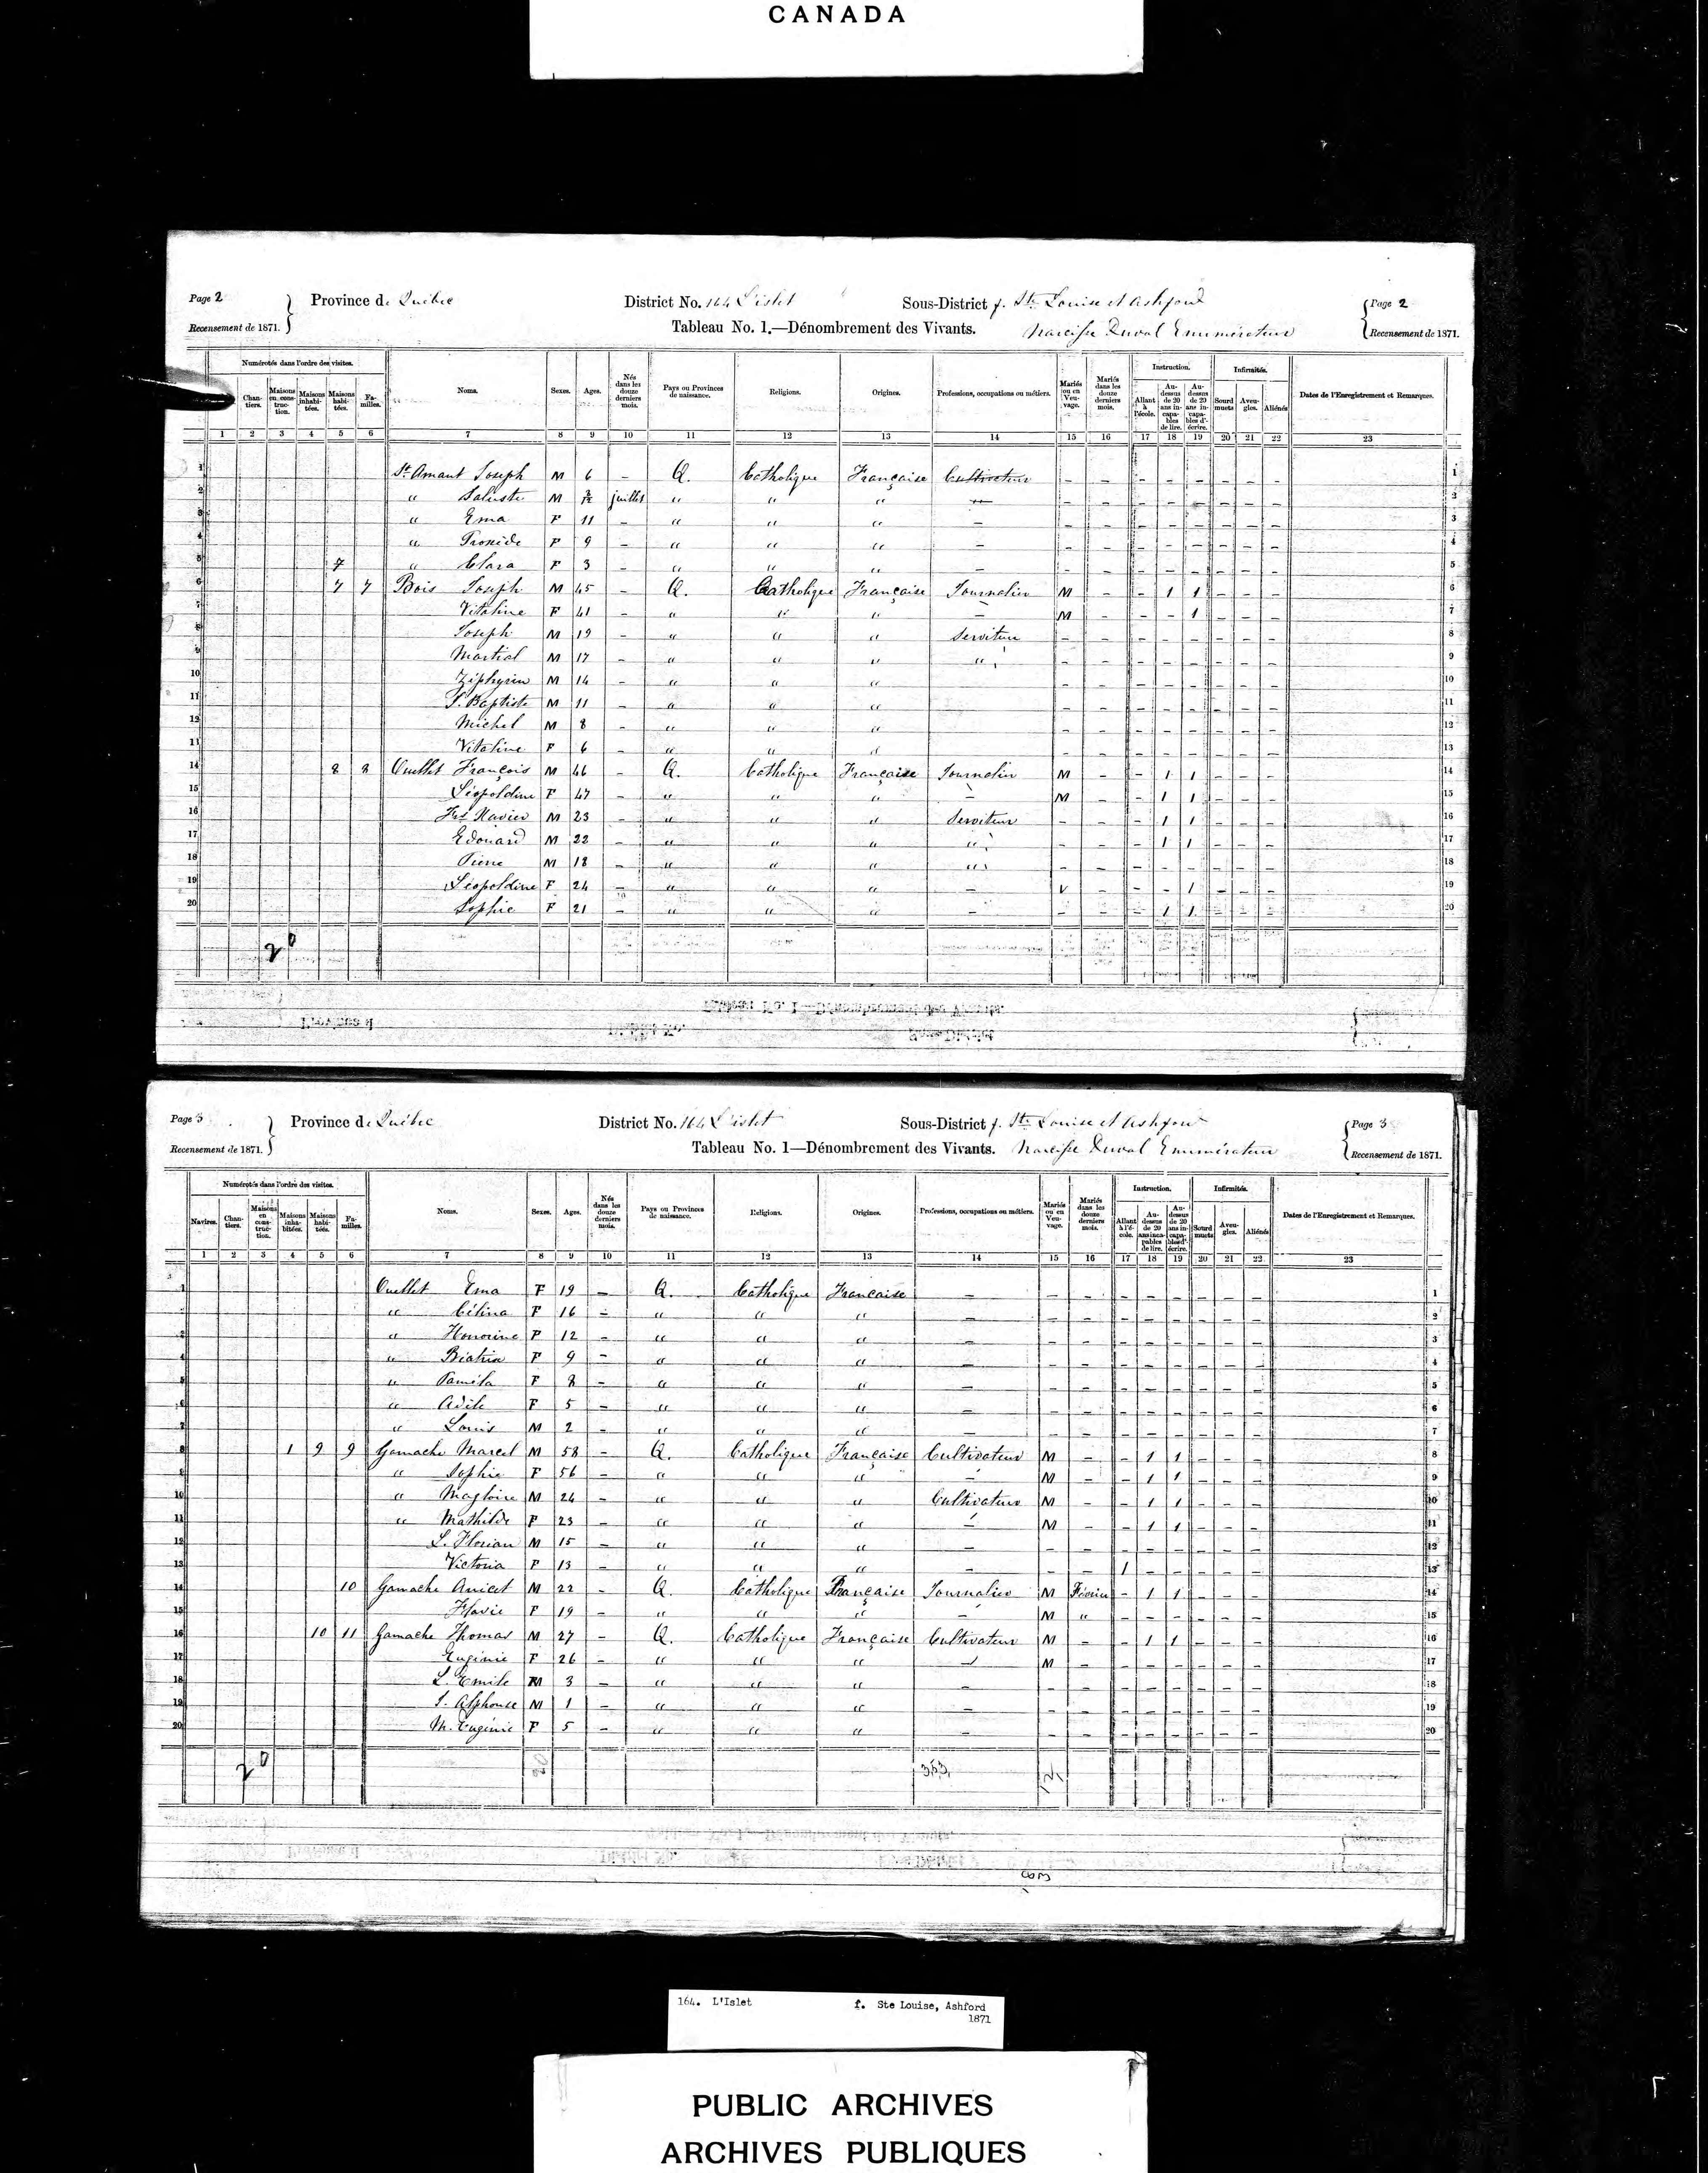 CANADA
Page 2 Province de Québec District No. 164 L'islet Sous-District f. Ste Louise et Ashford Page 2
Recensement de 1871. Tableau No. 1.—Dénombrement des Vivants. Narcisse Duval Enumérateur Recensement de 1871.
Numérotés dans l'ordre des visites. Noms. Sexes. Ages. Nés dans les douze derniers mois. Pays ou Provinces de naissance. Religions. Origines. Professions, occupations ou métiers. Mariés ou en Veuvage. Mariés dans les douze derniers mois. Instruction. Infirmités. Dates de l'Enregistrement et Remarques.
Chantiers. Maisons en construction. Maisons inhabitées. Maisons habitées. Familles. Allant à l'école. Au-dessus de 20 ans incapables de lire. Au-dessus de 20 ans incapables d'écrire. Sourd muets Aveugles. Aliénés
1 2 3 4 5 6 7 8 9 10 11 12 13 14 15 16 17 18 19 20 21 22 23
1 St. Amant Joseph M 6 - Q. Catholique Française Cultivateur - - - - - - - - 1
2 " Saluste M juillet " " " - - - - - - - - 2
3 " Ema F 11 - " " " - - - - - - - - - 3
4 " F 9 - " " " - - - - - - - - - 4
5 7 " Clara F 3 - " " " - - - - - - - - - 5
6 7 7 Bois Joseph M 45 - Q. Catholique Française Journalier M - - 1 1 - - - 6
7 Vitaline F 41 - " " " - M - - - 1 - - - 7
8 Joseph M 19 - " " " Serviteur - - - - - - - - 8
9 Martial M 17 - " " " " - - - - - - - - 9
10 Ziphyrin M 14 - " " " - - - - - - - - 10
11 J. Baptiste M 11 - " " " - - - - - - - - 11
12 Michel M 8 - " " " - - - - - - - - 12
13 Vitaline F 6 - " " " - - - - - - - - 13
14 8 8 Ouellet François M 46 - Q. Catholique Française Journalier M - - 1 1 - - - 14
15 Léopoldine F 47 - " " " - M - - 1 1 - - - 15
16 Frs Xavier M 23 - " " " Serviteur - - - 1 1 - - - 16
17 Edouard M 22 - " " " " - - - 1 1 - - - 17
18 Pierre M 18 - " " " " - - - - - - - - 18
19 Léopoldine F 24 - " " " - V - - - 1 - - - 19
20 Sophie F 21 - " " " - - - - 1 1 - - - 20
20
Page 3 Province de Québec District No. 164 L'islet Sous-District f. Ste Louise et Ashford Page 3
Recensement de 1871. Tableau No. 1—Dénombrement des Vivants. Narcisse Duval Enumérateur Recensement de 1871.
Numérotés dans l'ordre des visites. Noms. Sexes. Ages. Nés dans les douze derniers mois. Pays ou Provinces de naissance. Religions. Origines. Professions, occupations ou métiers. Mariés ou en Veuvage. Mariés dans les douze derniers mois. Instruction. Infirmités. Dates de l'Enregistrement et Remarques.
Navires. Chantiers. Maisons en construction. Maisons inhabitées. Maisons habitées. Familles. Allant à l'école. Au-dessus de 20 ans incapables de lire. Au-dessus de 20 ans incapables d'écrire. Sourd muets Aveugles. Aliénés
1 2 3 4 5 6 7 8 9 10 11 12 13 14 15 16 17 18 19 20 21 22 23
1 Ouellet Ema F 19 - Q. Catholique Française - - - - - - - - - 1
2 " Célina F 16 - " " " - - - - - - - - - 2
3 " Honorine F 12 - " " " - - - - - - - - - 3
4 " Béatrix F 9 - " " " - - - - - - - - - 4
5 " Paméla F 8 - " " " - - - - - - - - - 5
6 " Adile F 5 - " " " - - - - - - - - - 6
7 " Louis M 2 - " " " - - - - - - - - - 7
8 1 9 9 Gamache Marcel M 58 - Q. Catholique Française Cultivateur M - - 1 1 - - - 8
9 " Sophie F 56 - " " " - M - - 1 1 - - - 9
10 " Magloire M 24 - " " " Cultivateur M - - 1 1 - - - 10
11 " Mathilde F 23 - " " " - M - - 1 1 - - - 11
12 L. Florian M 15 - " " " - - - - - - - - - 12
13 Victoria F 13 - " " " - - - 1 - - - - - 13
14 10 Gamache Anicet M 22 - Q. Catholique Française Journalier M Février - 1 1 - - - 14
15 Flavie F 19 - " " " - M " - - - - - - 15
16 10 11 Gamache Thomas M 27 - Q. Catholique Française Cultivateur M - - 1 1 - - - 16
17 Eugénie F 26 - " " " - M - - - - - - - 17
18 L. Emile M 3 - " " " - - - - - - - - - 18
19 J. Alphonse M 1 - " " " - - - - - - - - - 19
20 M. Eugénie F 5 - " " " - - - - - - - - - 20
20
164. L'Islet f. Ste Louise, Ashford
1871
PUBLIC ARCHIVES
ARCHIVES PUBLIQUES